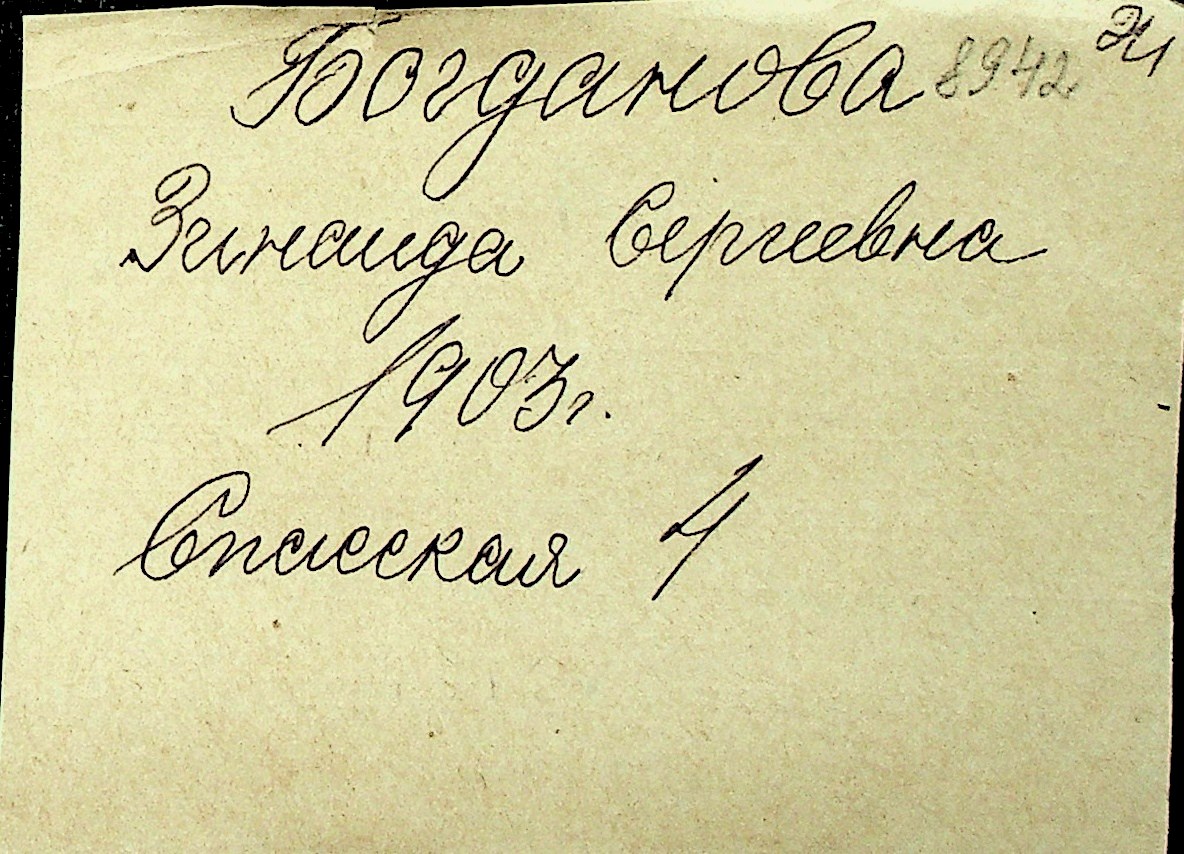 Богданова 8942
Зинаида Сергеевна
1903г.
Спасская 4